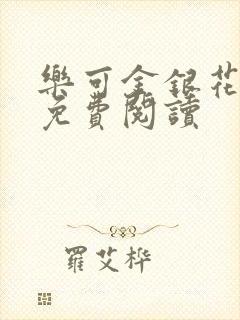 樂可金銀花
免費閱讀
羅艾桦